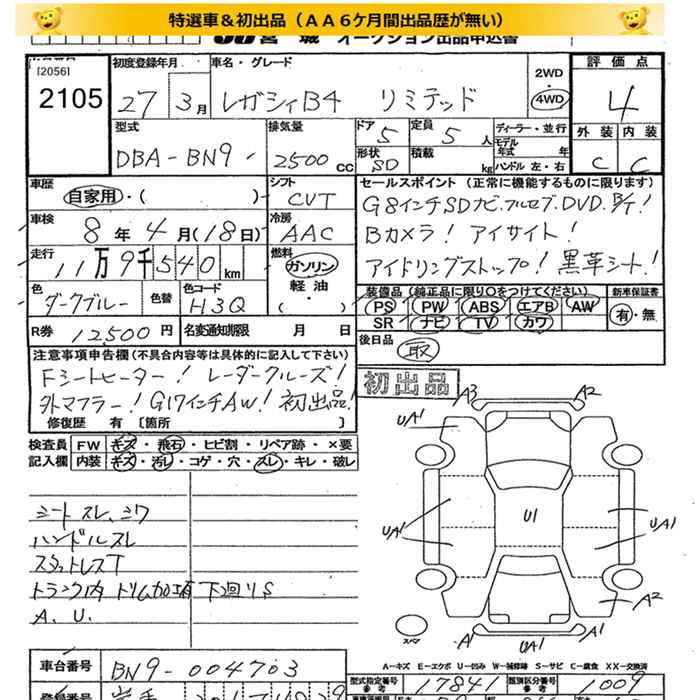 特選車＆初出品（ＡＡ６ケ月間出品歴が無い）
宮 城 オークション出品申込書
[2056]
2105
初度登録年月 車名・グレード 2WD・4WD 評価点
27 3月 レガシィB4 リミテッド 4
型式 排気量 ドア 定員 ディーラー・並行 外装 内装
DBA-BN9 2500cc 5 5人 モデル年式 年 C C
形状 積載 ハンドル 左・右
SD kg
車歴 シフト セールスポイント (正常に機能するものに限ります)
自家用・( ) CVT G8インチSDナビ.フルセグ.DVD.B/T!
車検 冷房 Bカメラ! アイサイト!
8年 4月(18日) AAC アイドリングストップ! 黒革シート!
走行 燃料
11万9千540km ガソリン 軽油
色 色替 色コード 装備品 (純正品に限り○をつけてください) 新車保証書
ダークブルー H3Q PS PW ABS エアB AW 有・無
SR ナビ TV カワ
R券 12500円 名変通知期限 月 日 後日品 取
注意事項申告欄 (不具合内容等は具体的に記入して下さい)
Fシートヒーター! レーダークルーズ! 初出品
外マフラー! G17インチAW! 初出品!
修復歴 有 [箇所 ]
検査員 FW キズ・飛石・ヒビ割・リペア跡・×要
記入欄 内装 キズ・汚レ・コゲ・穴・スレ・キレ・破レ
シート スレ、シワ
ハンドルスレ
スタットレスT
トランク内 トリム加工有 下廻りS
A.U.
A3 A2
UA1
U1
UA1 UA1
A2
A1 UA1 A1
スペア
A－キズ E－エクボ U－凹み W－補修跡 S－サビ C－腐食 XX－交換済
車台番号 BN9-004703
型式指定番号 17841 類別区分番号 1009
参考 参考
登録番号 岩手